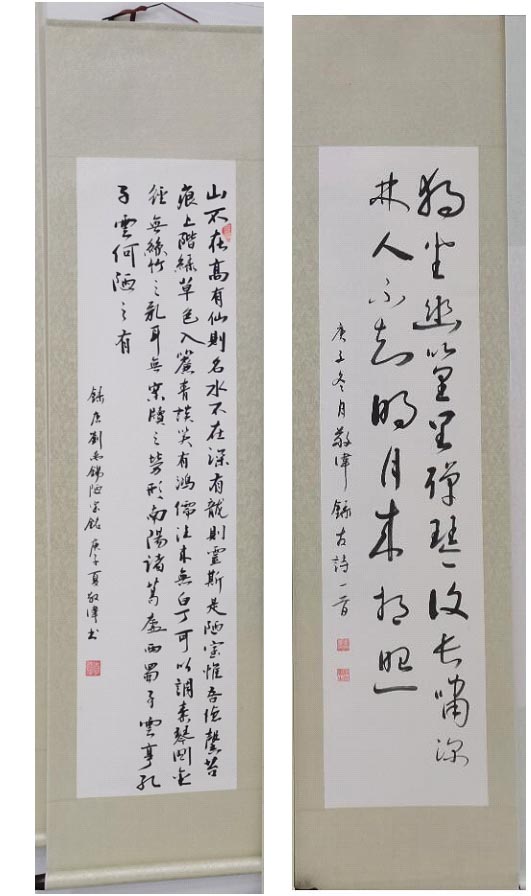 山不在高有仙則名水不在深有龍則靈斯是陋室惟吾德馨苔
痕上階綠草色入簾青談笑有鴻儒往來無白丁可以調素琴閱金
經無絲竹之亂耳無案牘之勞形南陽諸葛廬西蜀子雲亭孔
子雲何陋之有
錄唐劉禹錫陋室銘庚子夏敬偉書
獨坐幽篁里彈琴復長嘯深
林人不知明月來相照
庚子冬月敬偉錄古詩一首